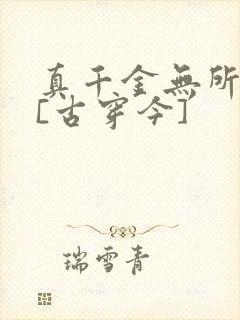 真千金無所
[古穿今]
瑞雪青